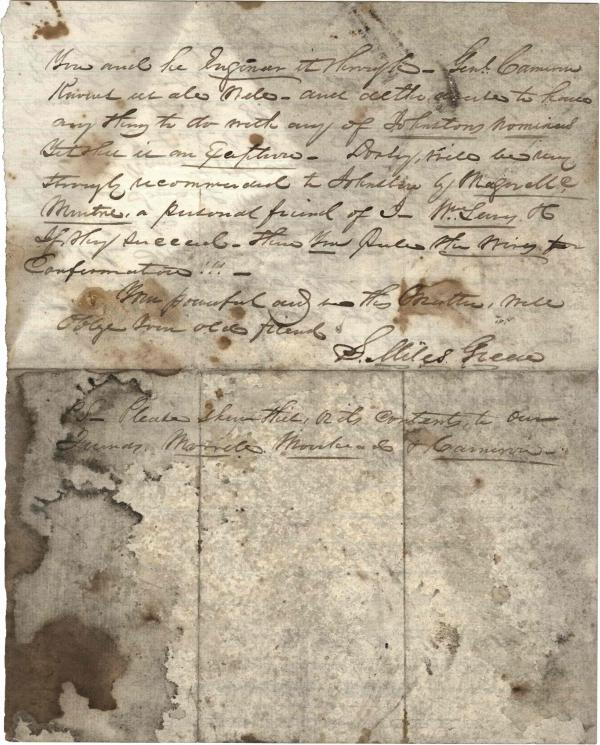 You and he Engineer it through - Genl. Cameron
Knows us all well - and all the
any thing to do with any of Johnstons nominees
but this is an Exception - will be very
strongly recommended to Johnston by
a personal friend of J - Wm
If they succeed - then You Pull the Wires for
Confirmation !!! -
Your powerful aid in this matter, will
oblige Your old friend
S. Miles Green
PS - Please show this, or its contents, to our
friends, Morrell Moorhead & Cameron -